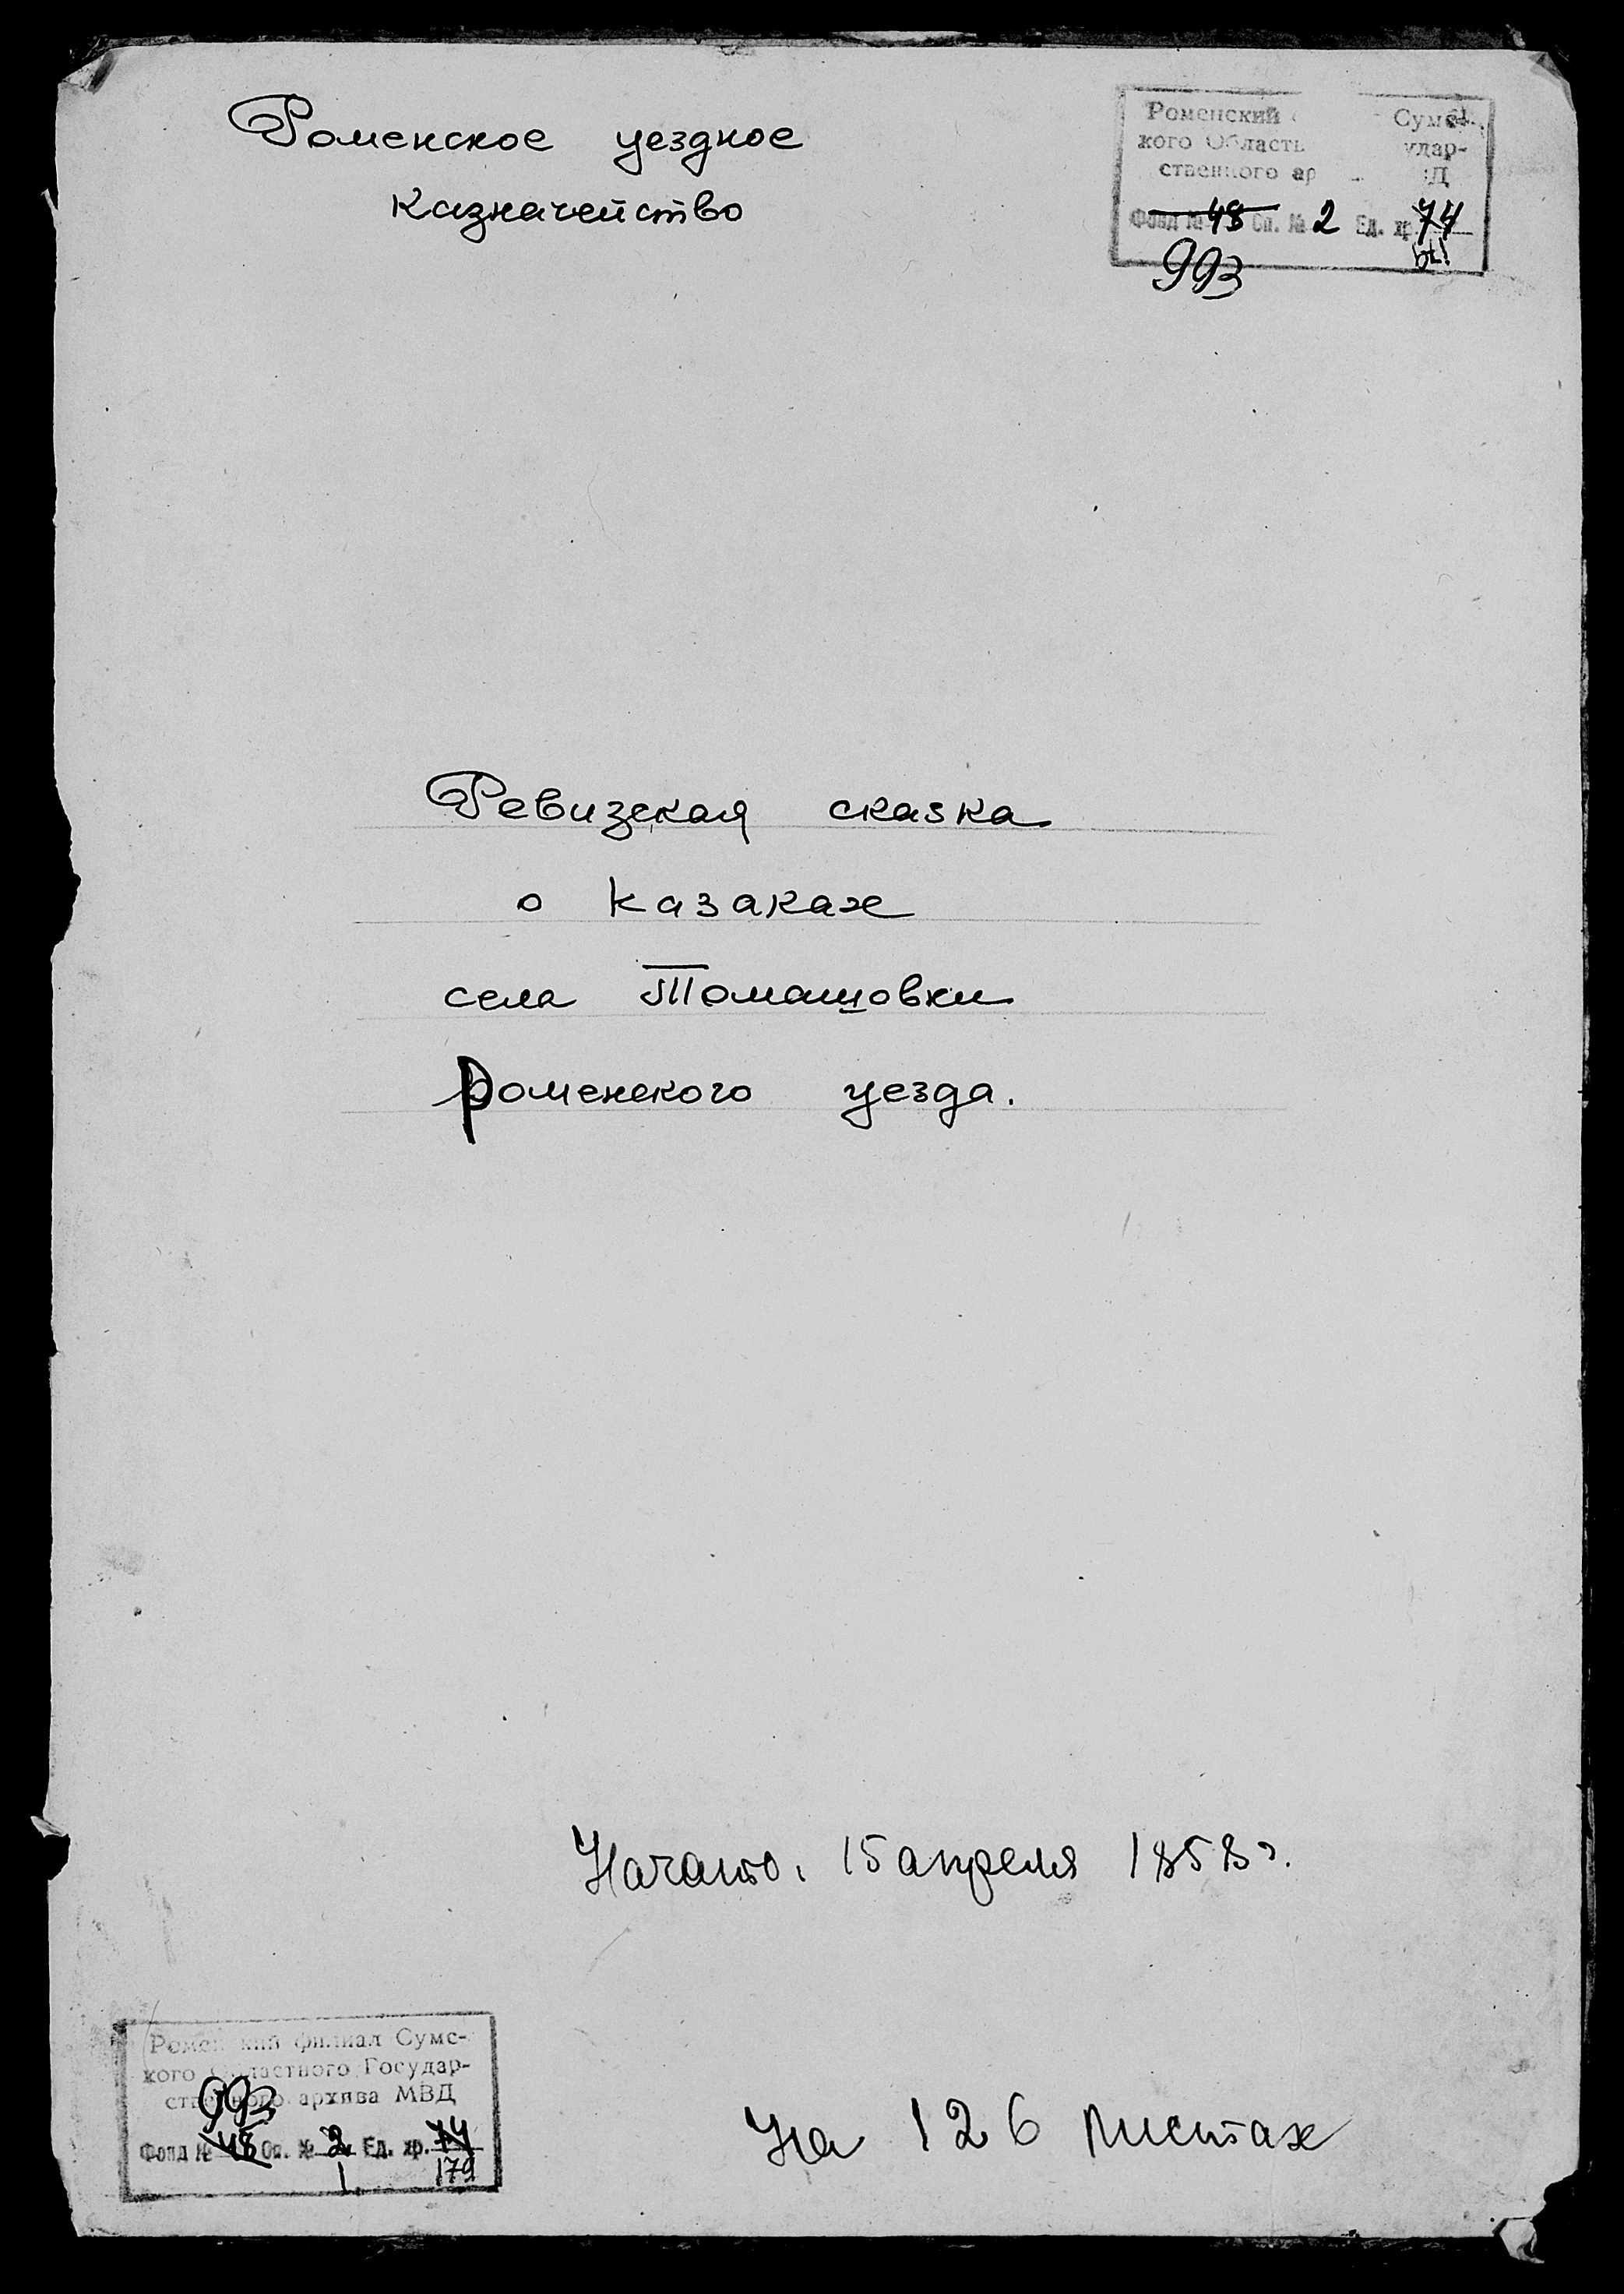 Роменское уездное
казначейство
Роменский Сумс
кого Област удар-
ственного ар Д
Фонд № 48 Оп. № 2 Ед. хр. 74
993
Ревизская сказка
о казаках
села Томашовки
Роменского уезда.
Начато. 15 апреля 1858 г.
На 126 листах
Роменский филиал Сумс-
кого Областного Государ-
ственного архива МВД
993
Фонд № 48 Оп. № 2 Ед. хр. 74
1. 179